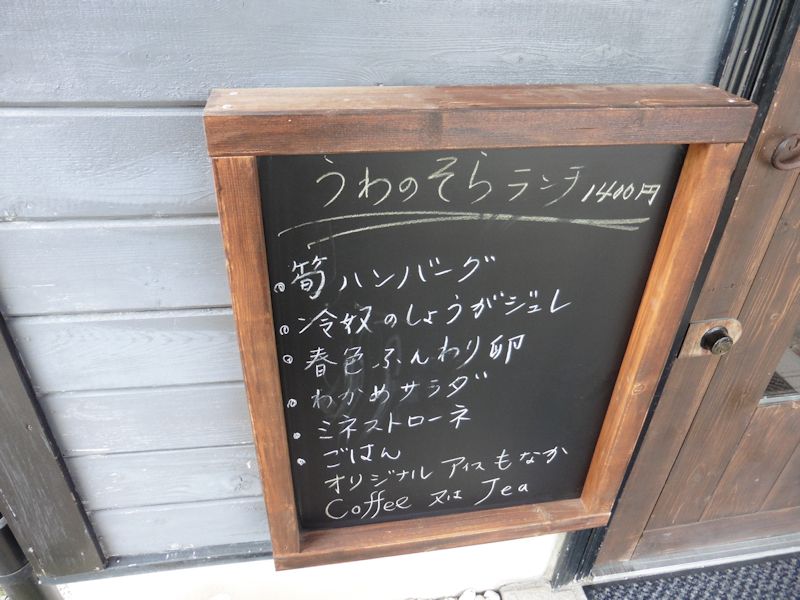 うわのそらランチ 1400円
筍ハンバーグ
冷奴のしょうがジュレ
春色ふんわり卵
わかめサラダ
ミネストローネ
ごはん
オリジナルアイスもなか
Coffee 又は Tea